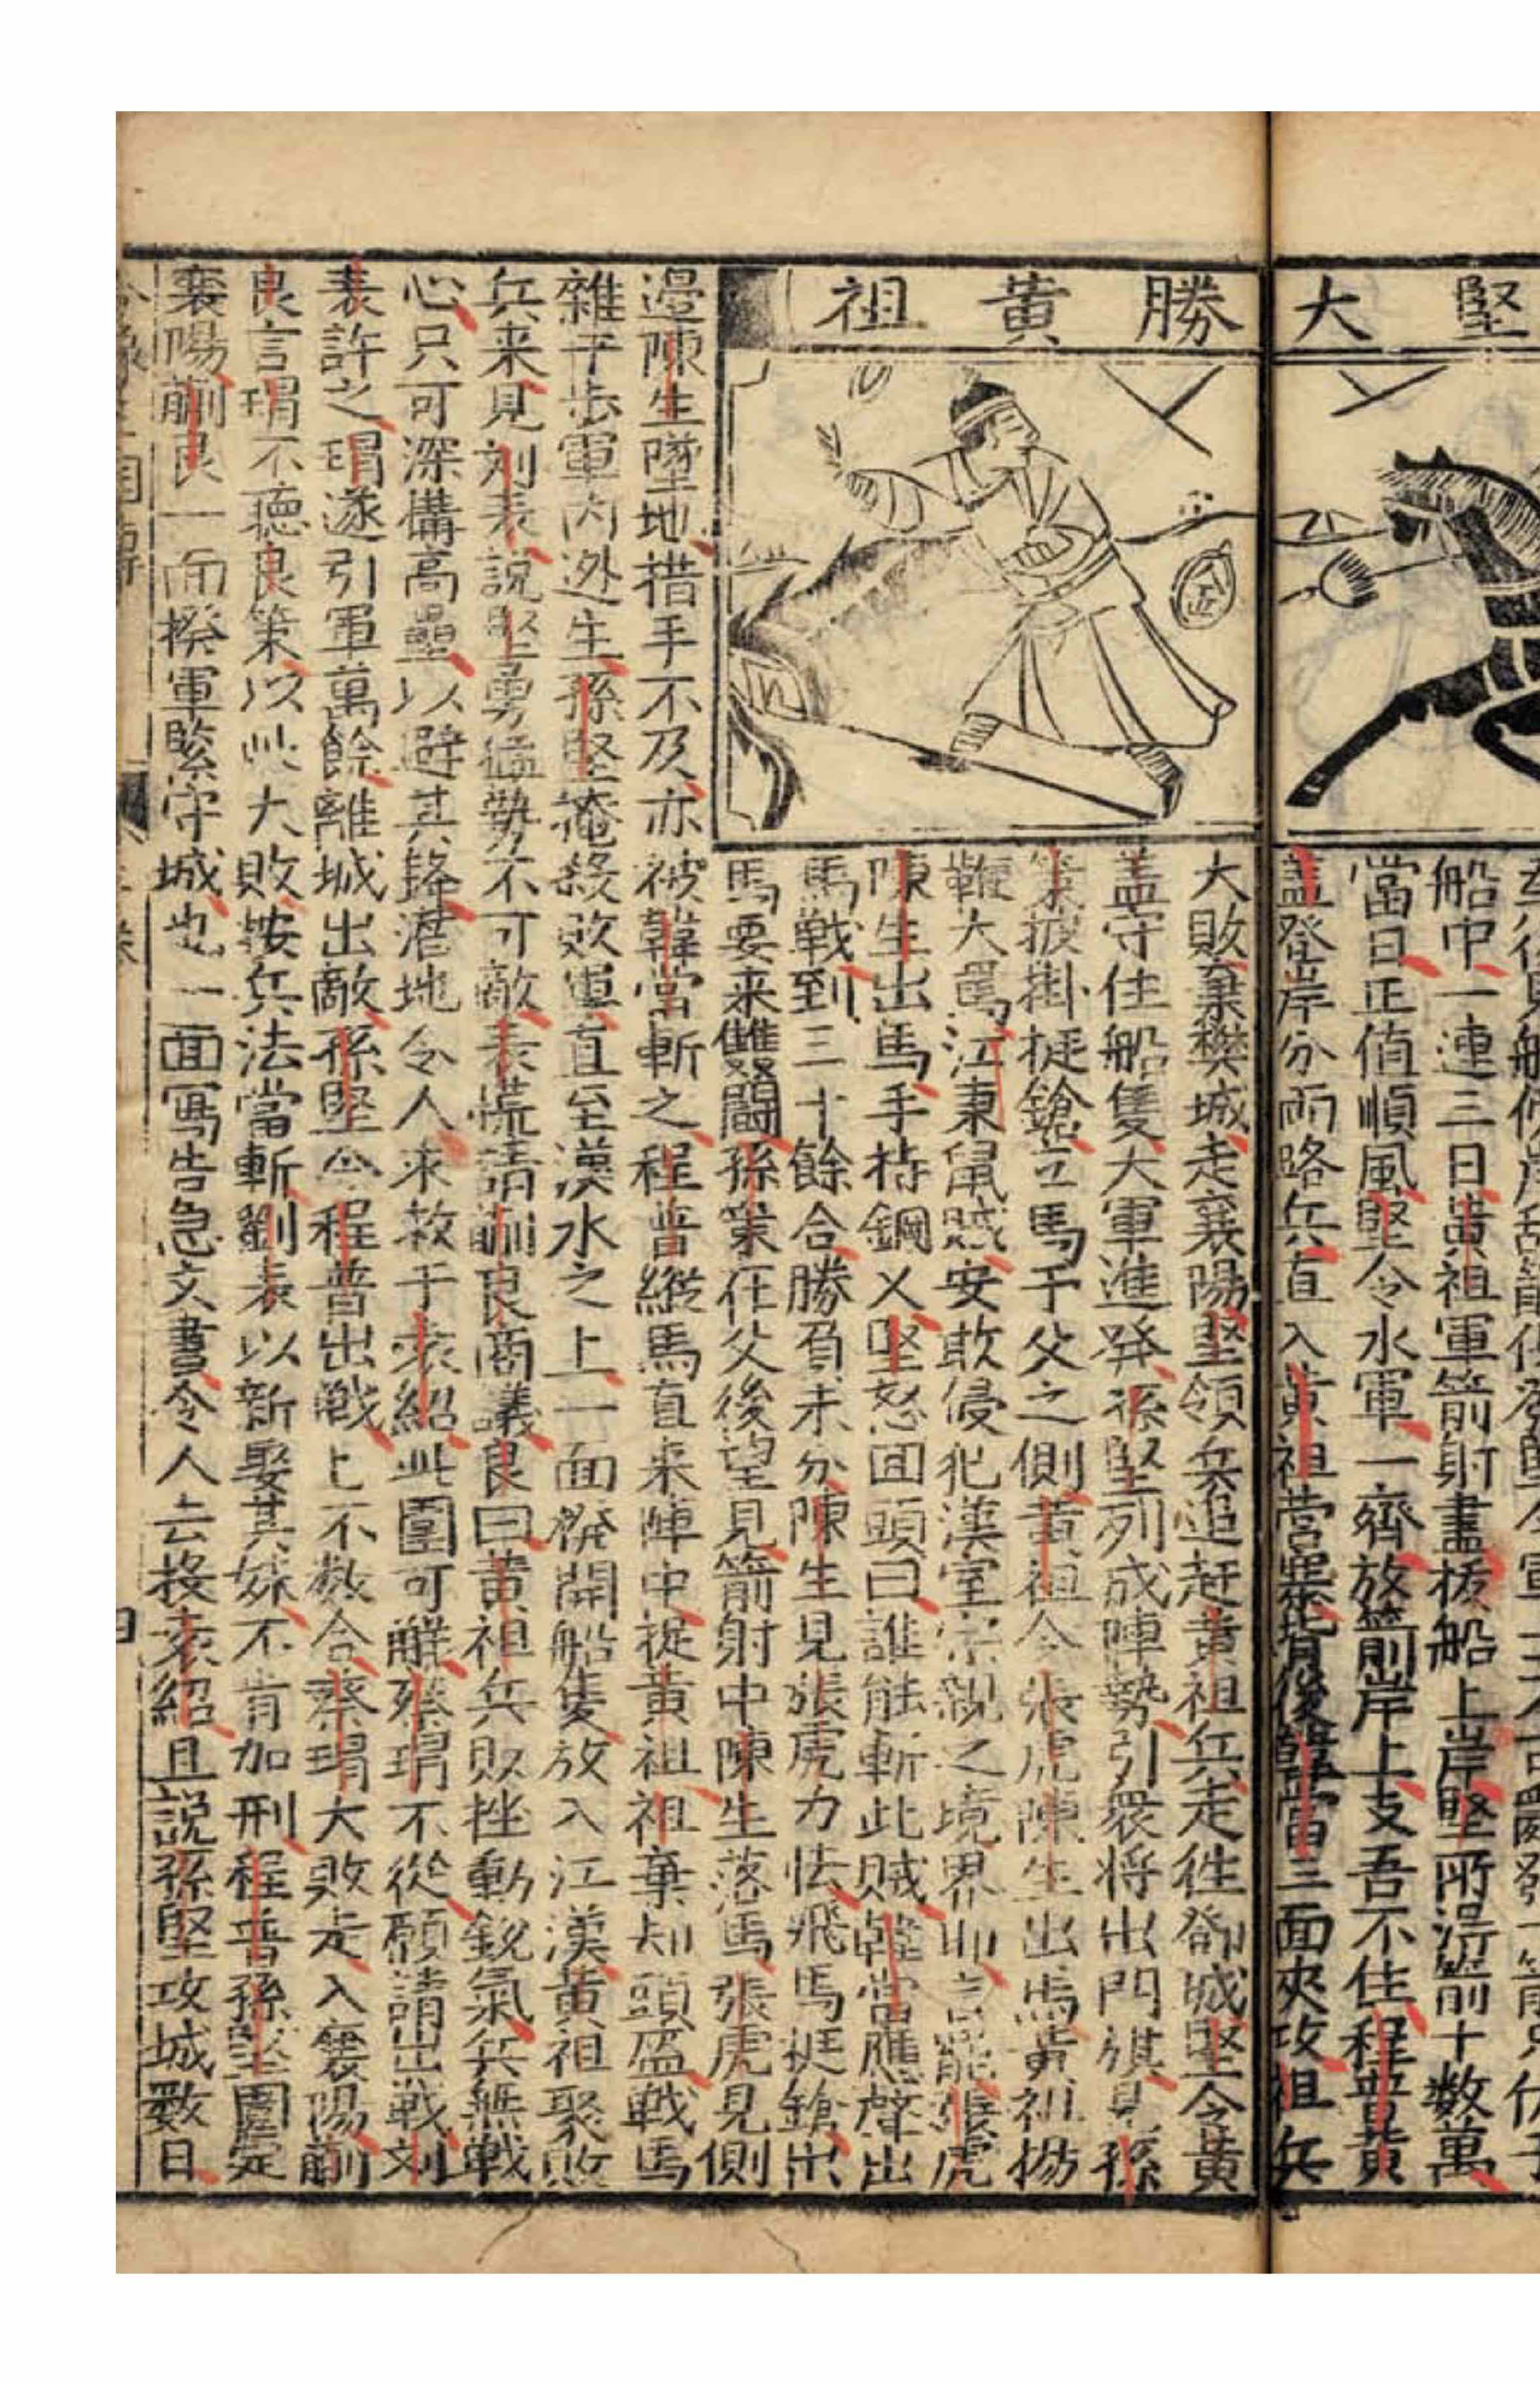 堅大勝黃祖
船中一連三日黃祖軍箭射盡拔船上岸堅所淂箭十数萬
當日正值順風堅令水軍一齊放箭岸上支吾不住程普黃
盖登岸分兩路兵直入黄祖营寨背後韓當三面夾攻祖兵
大敗棄樊城走襄陽堅領兵追赶黄祖兵走徃鄧城堅令黃
盖守住船隻大軍進發孫堅列成陣勢引衆将出門旗見孫
策披掛挺鎗立馬于父之側黃祖令張虎陳生出馬黃祖揚
鞭大罵江東鼠賊安敢侵犯漢室宗親之境界
陳生出馬手持鋼义堅怒囬頭曰誰能斬此賊韓當應聲出
馬戰到三十餘合勝負未分陳生見張虎力怯飛馬挺鎗出
馬要来雙鬭孫策在父後望見箭射中陳生落馬張虎見側
邉陳生墜地措手不及亦被韓當斬之程普縱馬直来陣中捉黃祖祖棄却頭盔戰馬
雜于步軍内迯生孫堅掩殺敗軍直至漢水之上一面撥開船隻放入江漢黃祖聚敗
兵来見刘表說堅勇猛勢不可敵表慌請蒯良商議良曰黃祖兵敗挫動銳氣兵無戰
心只可深構高壘以避其鋒潜地令人求救于袁紹此圍可觧蔡瑁不從願請出戰刘
表許之瑁遂引軍萬餘離城出敵孫堅令程普出戰上不数合蔡瑁大敗走入襄陽蒯
良言瑁不聽良策以此大敗按兵法當斬劉表以新娶其妹不肯加刑程普孫堅圍定
襄陽蒯良一面撥軍緊守城也一面寫告急文書令人去投袁紹且説孫堅攻城數日